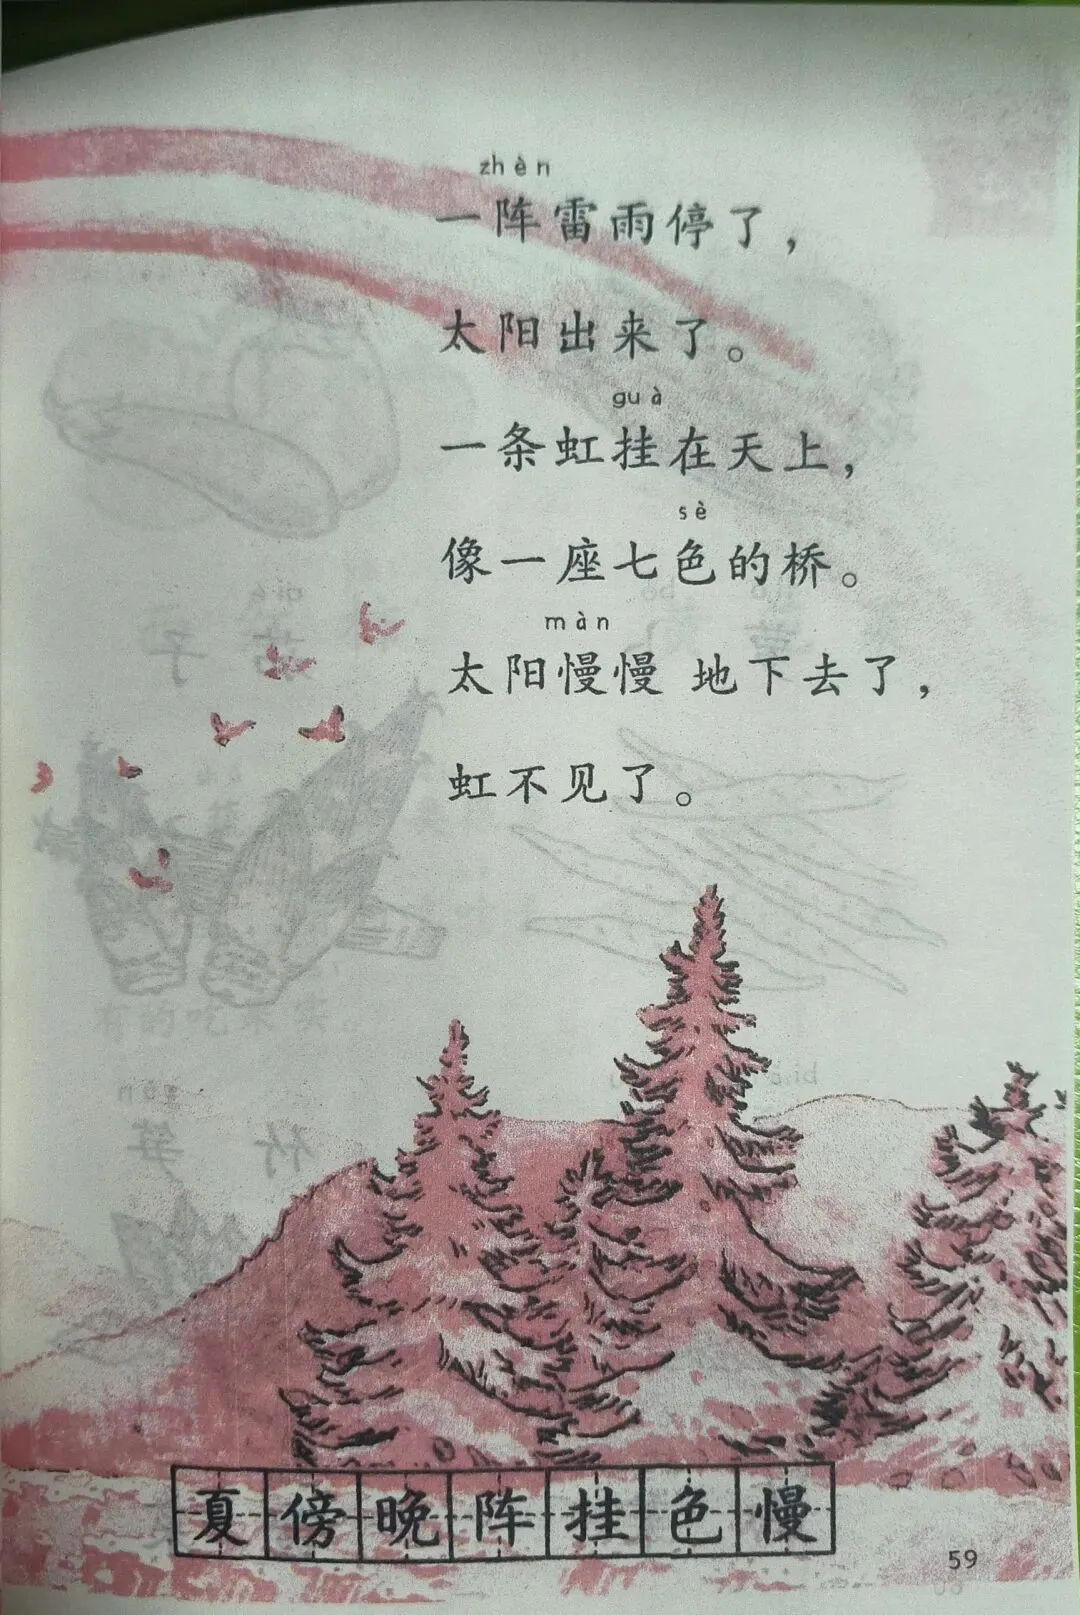 zhèn
一阵雷雨停了，
太阳出来了。
guà
一条虹挂在天上，
sè
像一座七色的桥。
màn
太阳慢慢 地下去了，
虹不见了。
夏傍晚阵挂色慢
59